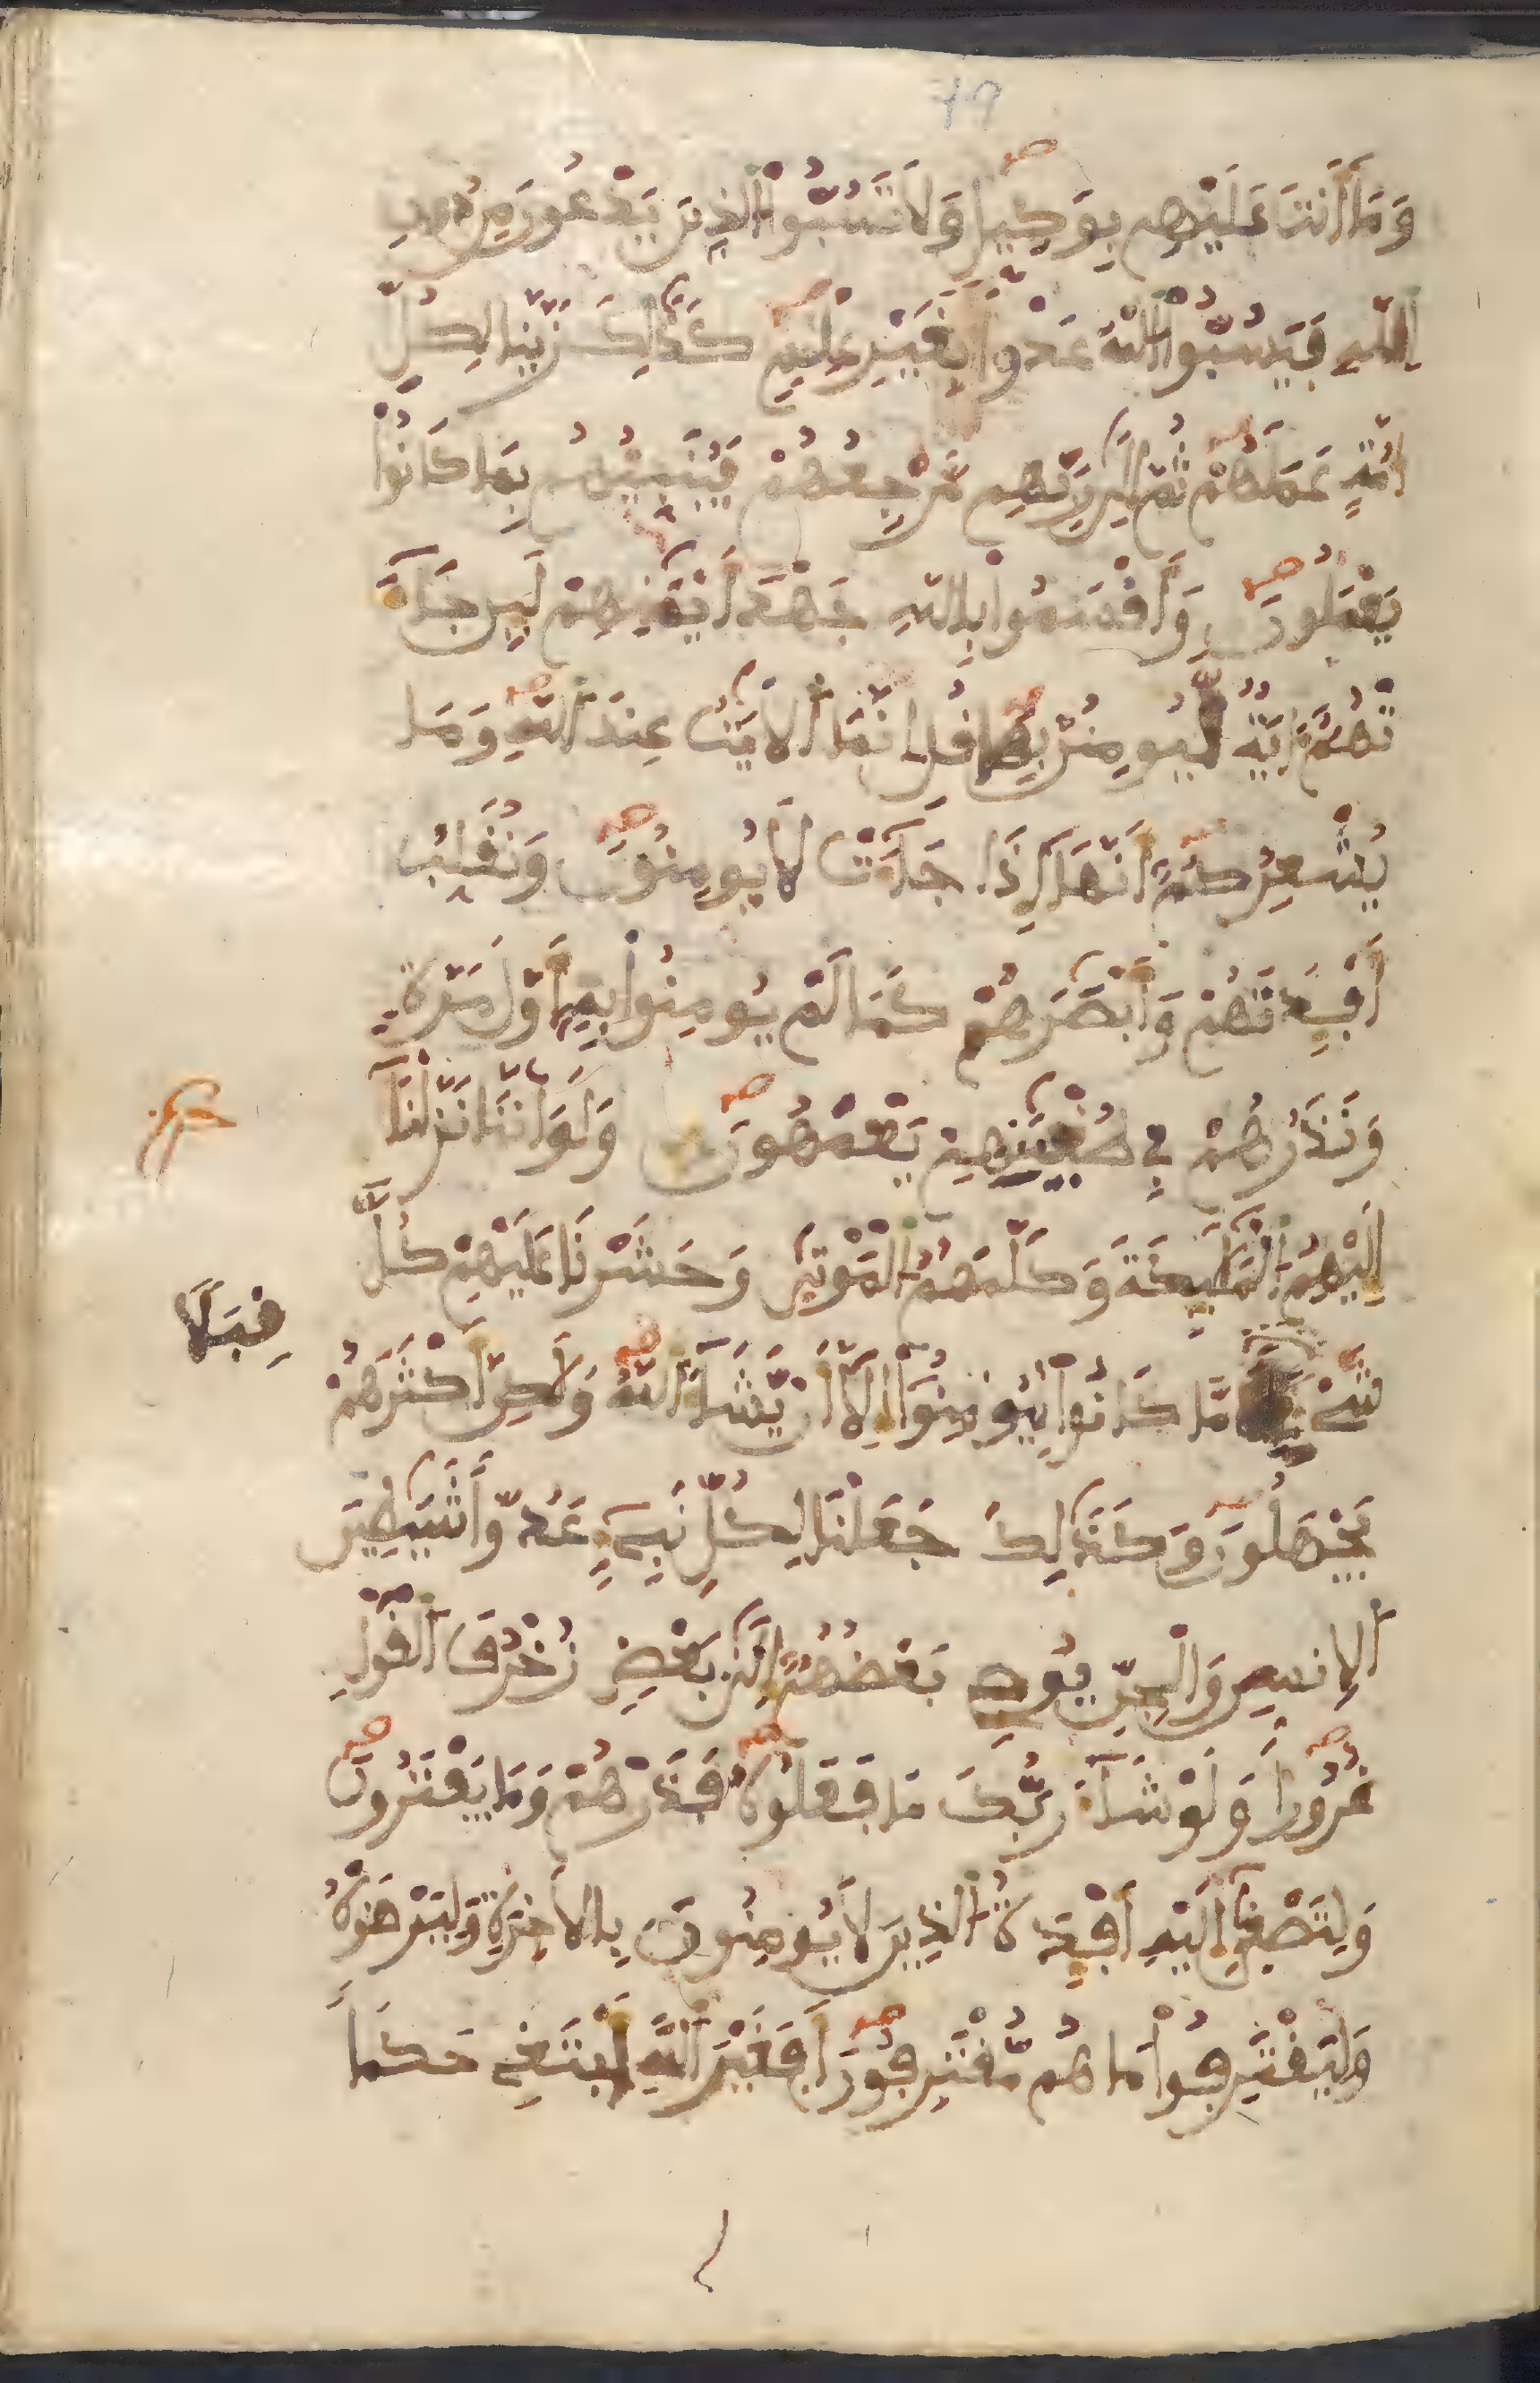 وَمَا أَنتَ عَلَيْهِم بِوَكِيلٍ وَلَا تَسُبُّوا الذِينَ يَدْعُونَ مِن دُونِ
اللَّهِ فَيَسُبُّوا اللَّهَ عَدْوًا بِغَيْرِ عِلْمٍ كَذَٰلِكَ زَيَّنَّا لِكُلِّ
امَّةٍ عَمَلَهُمْ ثُمَّ إِلَىٰ رَبِّهِم مَّرْجِعُهُمْ فَيُنَبِّئُهُم بِمَا كَانُوا
يَعْمَلُونَ وَأَقْسَمُوا بِاللَّهِ جَهْدَ أَيْمَٰنِهِمْ لَئِن جَآءَ
تْهُمُ ءَايَةٌ لَّيُومِنُنَّ بِهَا قُلِ انَّمَا الَايَٰتُ عِندَ اللَّهِ وَمَا
يُشْعِرُكُمُ أَنَّهَا إِذَا جَآءَتْ لَا يُومِنُونَ وَنُقَلِّبُ
أَفْـِٔدَتَهُمْ وَأَبْصَٰرَهُمْ كَمَا لَمْ يُومِنُوا بِهِ أَوَّلَ مَرَّةٍ
وَنَذَرُهُمْ فِي طُغْيَٰنِهِمْ يَعْمَهُونَ وَلَوَ انَّنَا نَزَّلْنَآ
إِلَيْهِمُ الْمَلَٰٓئِكَةَ وَكَلَّمَهُمُ الْمَوْتَىٰ وَحَشَرْنَا عَلَيْهِمْ كُلَّ
قِبَلًا
شَےْءٍ مَّا كَانُوا لِيُومِنُوٓا إِلَّآ أَن يَّشَآءَ اللَّهُ وَلَٰكِنَّ أَكْثَرَهُمْ
يَجْهَلُونَ وَكَذَٰلِكَ جَعَلْنَا لِكُلِّ نَبِےٓءٍ عَدُوًّا شَيَٰطِينَ
الِانسِ وَالْجِنِّ يُوحِے بَعْضُهُمُ إِلَىٰ بَعْضٍ زُخْرُفَ الْقَوْلِ
غُرُورًا وَلَوْ شَآءَ رَبُّكَ مَا فَعَلُوهُ فَذَرْهُمْ وَمَا يَفْتَرُونَ
وَلِتَصْغَىٰ إِلَيْهِ أَفْـِٔدَةُ الذِينَ لَا يُومِنُونَ بِالَاخِرَةِ وَلِيَرْضَوْهُ
وَلِيَقْتَرِفُوا مَا هُم مُّقْتَرِفُونَ أَفَغَيْرَ اللَّهِ أَبْتَغِے حَكَمًا